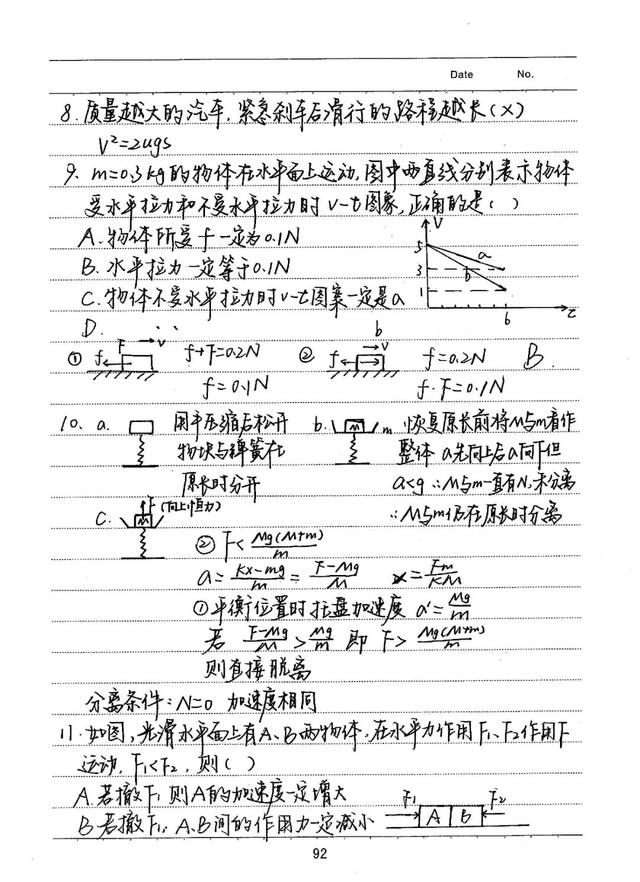 Date No.
8. 质量越大的汽车,紧急刹车后滑行的路程越长(×)
V²=2ugs
9. m=0.3kg的物体在水平面上运动,图中两直线分别表示物体
受水平拉力和不受水平拉力时 v-t图象,正确的是( )
A. 物体所受f一定为0.1N
B. 水平拉力一定等于0.1N
C. 物体不受水平拉力时v-t图案一定是a
D. b
V
5
3
1
a
b
6
t
① f F v f+F=0.2N ② f v f=0.2N B
f=0.1N f-F=0.1N
10. a. 用手压缩后松开 b. M m 恢复原长前将M与m看作
物块与弹簧在 整体 a先向上后a向下但
原长时分开 a<g ∴M与m一直有N,未分离
c. F(向上恒力) M ∴M与m仍在原长时分离
② F< Mg(M+m)/m
a= kx-mg/m = F-Mg/M x= Fm/kM
①平衡位置时托盘加速度 a'= Mg/m
若 F-Mg/M > Mg/m 即 F> Mg(M+m)/m
则直接脱离
分离条件:N=0 加速度相同
11. 如图,光滑水平面上有A、B两物体,在水平力作用F₁、F₂作用下
运动,F₁<F₂,则( )
A. 若撤F₁ 则A的加速度一定增大
B. 若撤F₁, A、B间的作用力一定减小
F₁ A B F₂
92